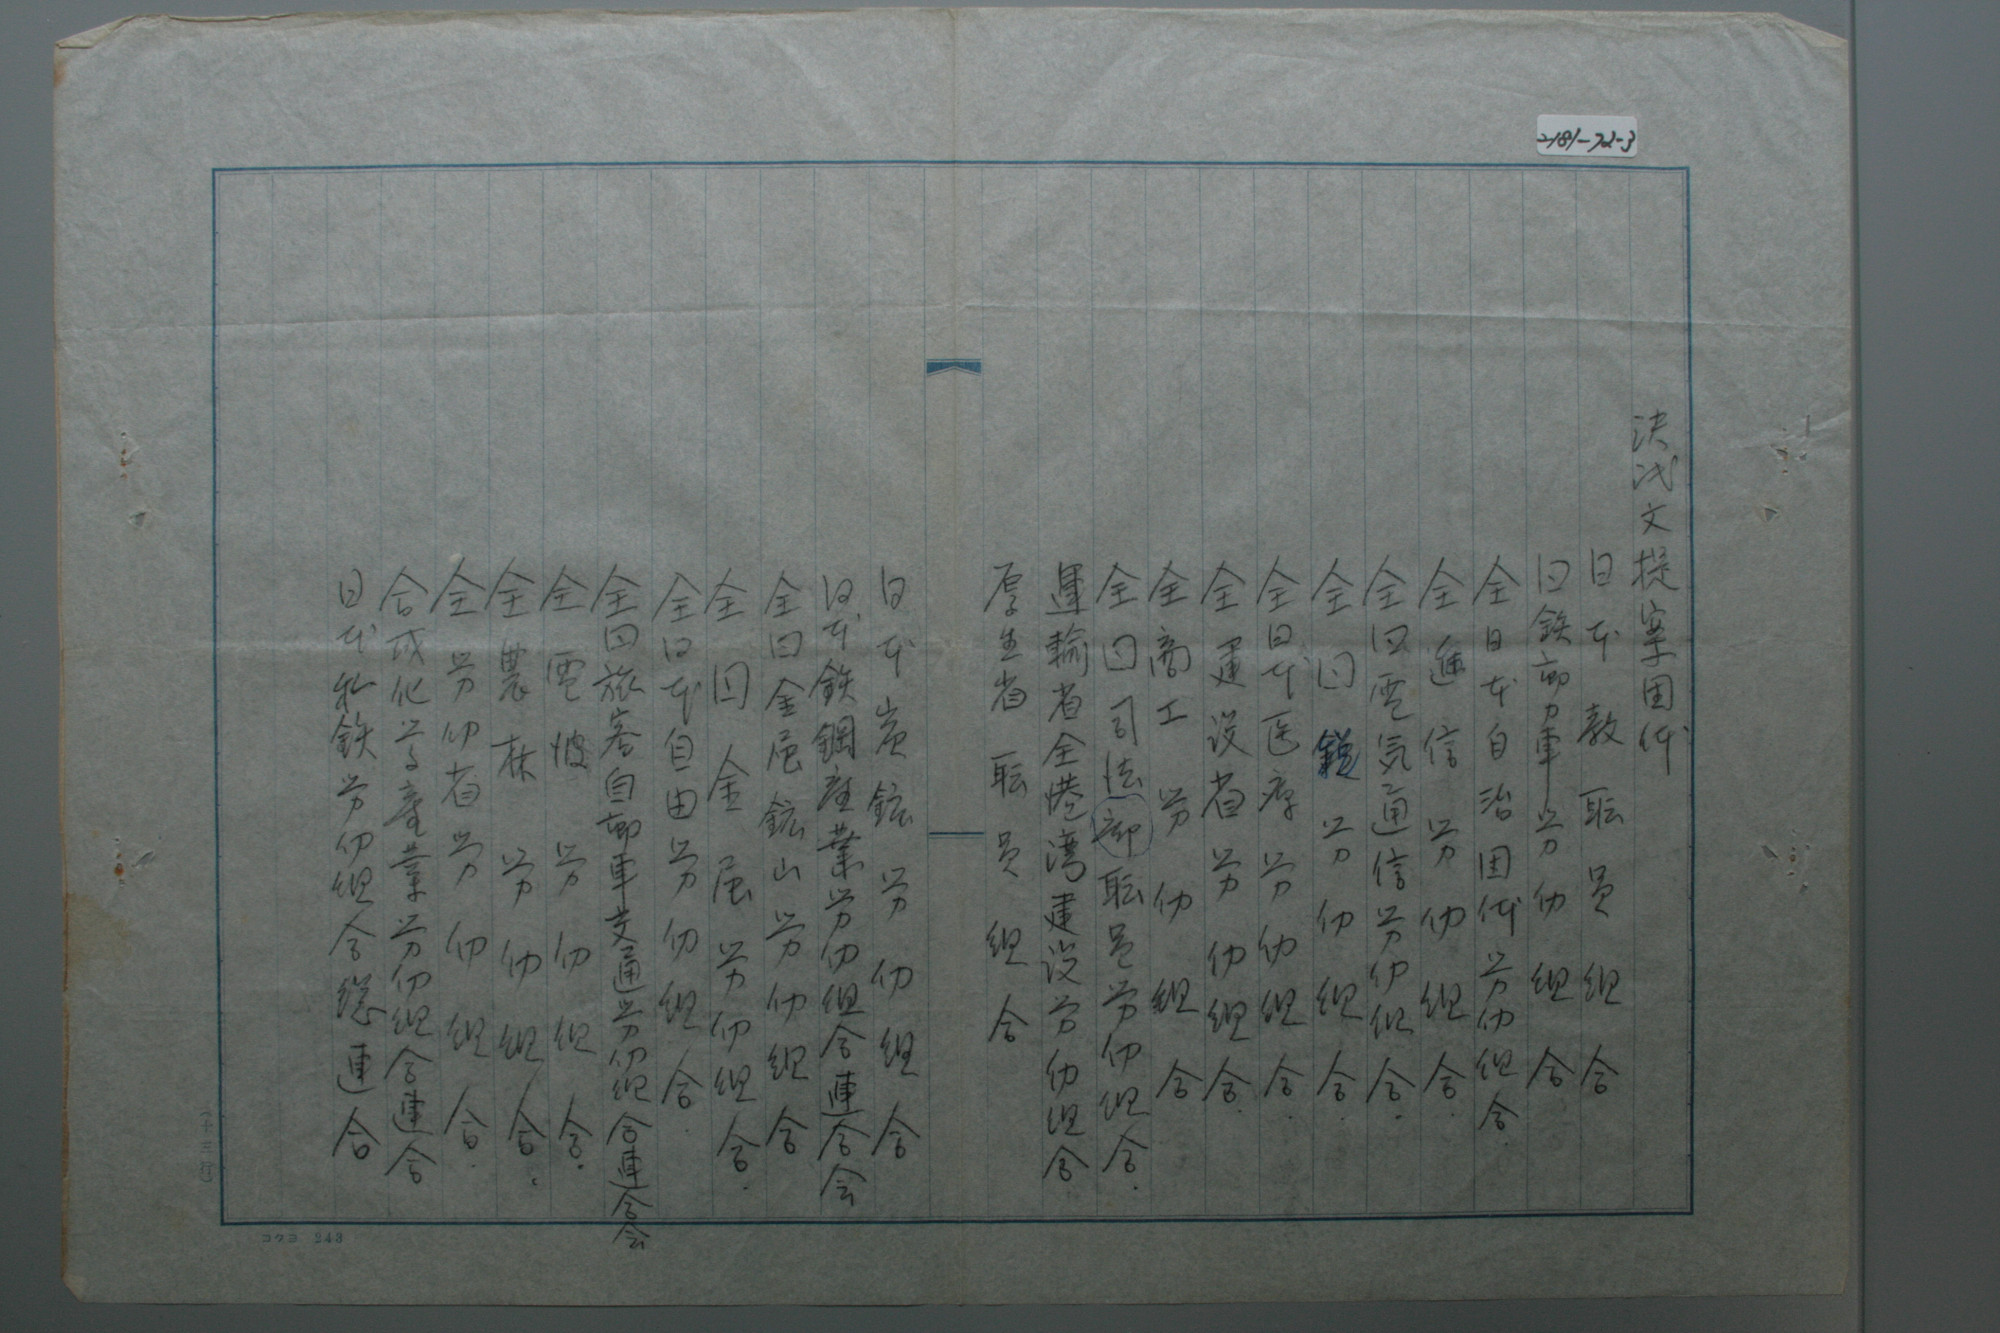 2181-72-3
決议文提案団体
日本教职員組合
国鉄動力車労仂組合
全日本自治団体労仂組合.
全逓信労仂組合.
全国電気通信労仂組合.
全国税労仂組合.
全日本医療労仂組合.
全建設省労仂組合.
全商工労仂組合
全国司法部职員労仂組合.
運輸省全港湾建设労仂組合
厚生省职員組合
日本炭鉱労仂組合
日本鉄鋼産業労仂組合連合会
全国金属鉱山労仂組合
全国金属労仂組合.
全日本自由労仂組合.
全国旅客自動車交通労仂組合連合会
全電波労仂組合.
全農林労仂組合.
全労仂省労仂組合.
合成化学産業労仂組合連合
日本私鉄労仂組合総連合
(十三行)
コクヨ 243